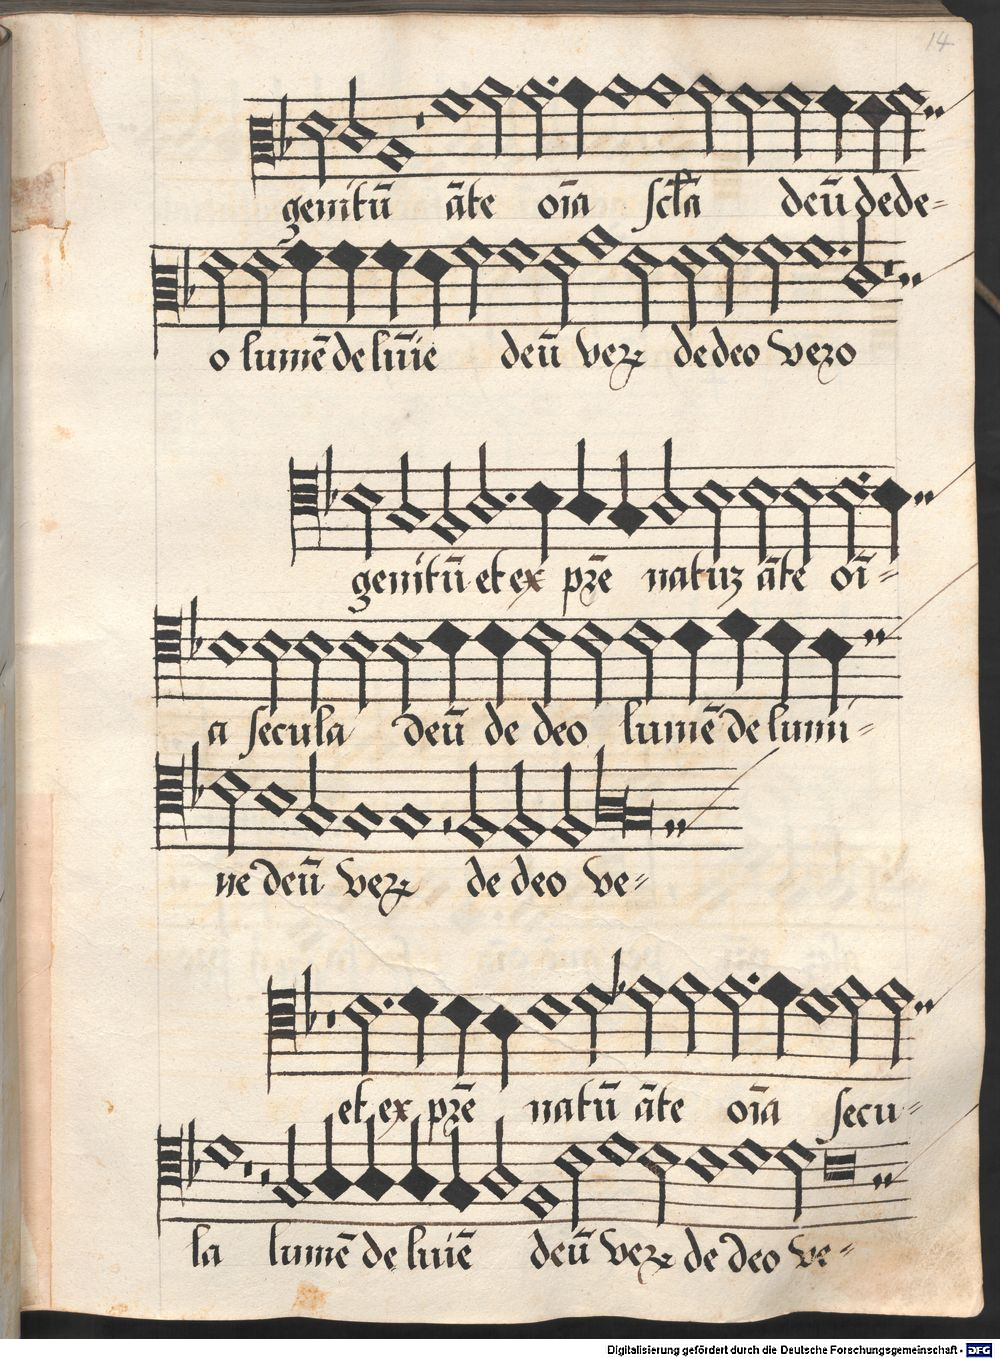 14
genitū āte oīa scl̄a deū dede=
o lumē de lūie deū veꝝ dedeo vero
genitū et ex pr̄e natuꝫ āte oī=
a secula deū de deo lumē de lumi=
ne deū veꝝ de deo ve=
et ex pr̄e natū āte oīa secu=
la lumē de luiē deū veꝝ de deo ve=
Digitalisierung gefördert durch die Deutsche Forschungsgemeinschaft - DFG